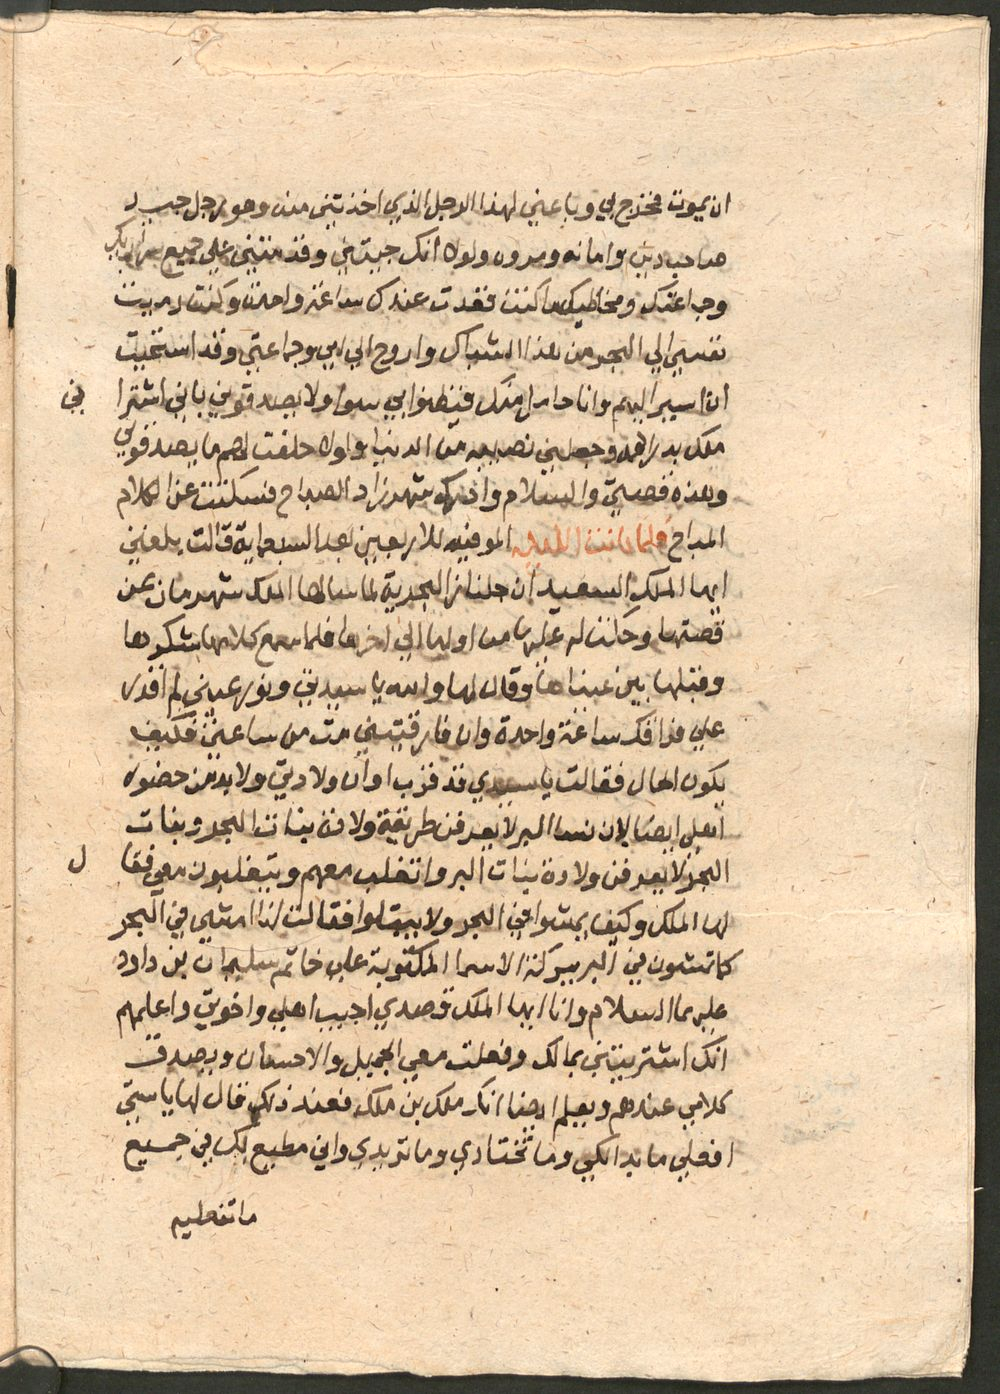 ان يموت فخرج بي وباعني لهذا الرجل الذي اخذتني منه وهو رجل جيد
صاحب دين وامانه ومروه ولولا انك حبيتني وقدمتيني علي جميع سراريك
وجماعتك ومحاظيك ما كنت قعدت عندك ساعة واحدة وكنت رميت
نفسي الي البحر من هذا الشباك واروح الي امي وجماعتي وقد استحيت
ان اسير اليهم وانا حامل منك فيظنوا بي سوا ولا يصدقوني باني اشترا ني
ملك بدراهمه وجعلني نصيبه من الدنيا ولو حلفت لهم ما يصدقوني
وهذه قصتي والسلام وادرك شهرزاد الصباح فسكتت عن الكلام
المباح فلما كانت الليلة الموفيه للاربعين بعد السبعماية قالت بلغني
ايها الملك السعيد ان جلناز البحرية لما سالها الملك شهرمان عن
قصتها وحكت له عليها من اولها الي اخرها فلما سمع كلامها شكرها
وقبلها بين عيناها وقال لها والله يا سيدتي ونور عيني لم اقدر
علي فراقك ساعة واحدة وان فارقتيني مت من ساعتي فكيف
يكون الحال فقالت يا سيدي قد قرب اوان ولادتي ولا بد من حضور
اهلي ايضا لان نسا البر لا يعرفن طريقة ولادة بنات البحر وبنات
البحر لا يعرفن ولادة بنات البر وانقلب معهم وينقلبون معي فقا ل
لها الملك وكيف يمشوا في البحر ولا يبتلوا فقالت انا امشي في البحر
كما تمشون في البر ببركة الاسما المكتوبة علي خاتم سليمان بن داود
عليهما السلام وانا ايها الملك قصدي اجيب اهلي واخوتي واعلمهم
انك اشتريتني بمالك وفعلت معي الجميل والاحسان ويصدق
كلامي عندهم ويعلم ايضا انك ملك بن ملك فعند ذلك قال لها يا ستي
افعلي ما بدالكي وما تختاري وما تريدي واني مطيع لك في جميع
ما تفعليه